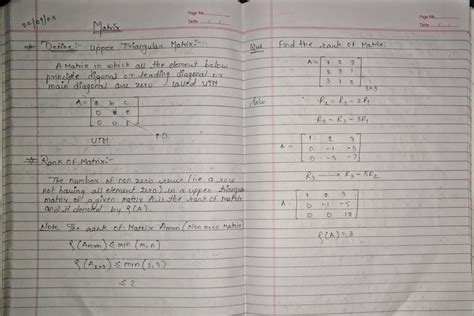 Page No.
Date
Matrix
Define:- Upper Triangular Matrix:-
A Matrix in which all the element below
principle digonal or leading diagonal or
main diagonal are zero called UTM
A = a b c
0 d e
0 0 f
P.D.
UTM
# Rank Of Matrix:-
The number of non zero
not having all element zero) in a upper triangular
matrix of a given matrix A is the rank of Matrix
and it denoted by ρ(A)
Note The rank of Matrix Amxn (Non zero Matrix)
ρ(Amxn) ≤ min(m,n)
≤ 2
Page No.
Date
Que Find the rank of Matrix:
A =
2 3 1
3 1 2
3x3
Soln
R3 - 3R1
A = 1 2 3
0 -1 -5
0 -5 -7
R3 → R3 - 5R2
A = 1 2 3
0 -1 -5
0 0 18
ρ(A) = 3